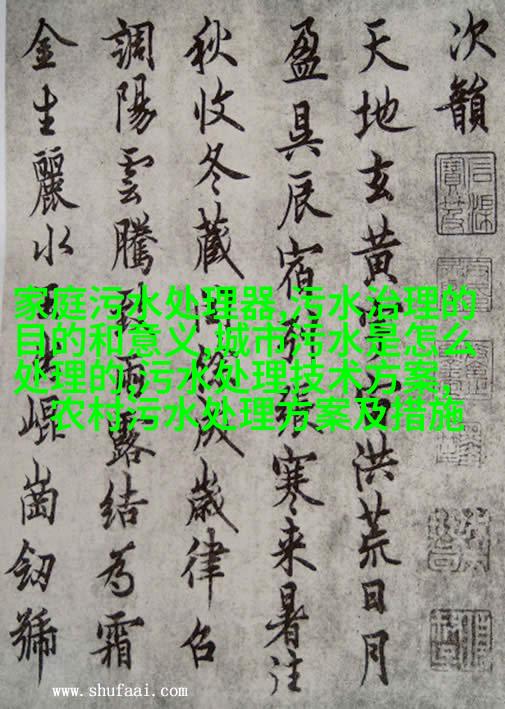 次韻
天地玄黃洪荒日月
盈昃辰宿寒来暑往
秋收冬藏成歲律召
調陽雲騰致雨露結為霜
金生麗水玉出崐崗劒號
家庭污水处理器,污水治理的
目的和意义,城市污水是怎么
处理的,污水处理技术方案,
农村污水处理方案及措施
www.shufaai.com